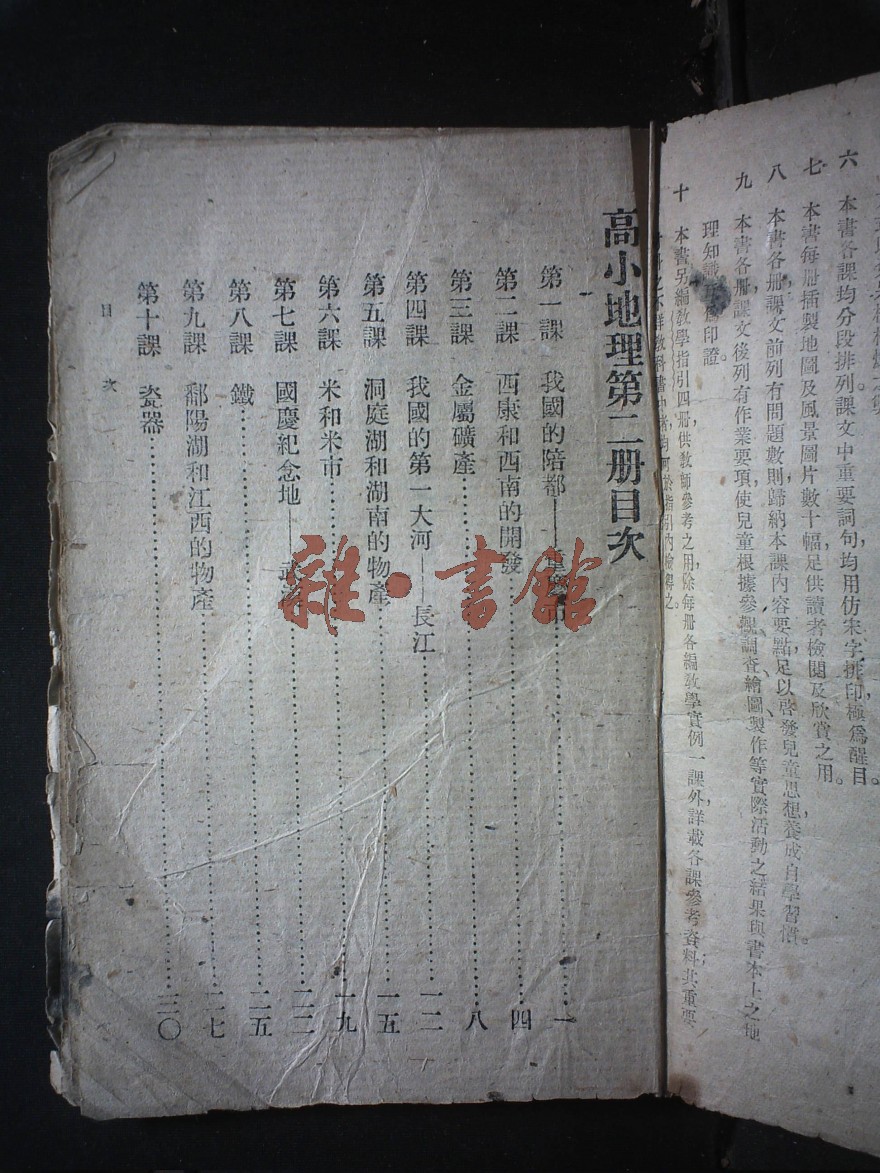 六　本書各課均分段排列課文中重要詞句，均用仿宋字排印極爲醒目。
七　本書每册插製地圖及風景圖片數十幅足供讀者檢閱及欣賞之用。
八　本書各册課文前列有問題數則歸納本課內容要點足以啓發兒童思想養成自學習慣。
九　本書各册課文後列有作業要項，使兒童根據參觀調查繪圖製作等實際活動之結果與書本上之地
理知識 印證。
十　本書另編教學指引四册，供教師參考之用，除每册各編教學實例一課外，詳載各課參考資料，其重要
高小地理第二册目次
第一課　我國的陪都——重慶市……一
第二課　西康和西南的開發……四
第三課　金屬礦產……八
第四課　我國的第一大河——長江……一二
第五課　洞庭湖和湖南的物產……一五
第六課　米和米市……一九
第七課　國慶紀念地——武……二二
第八課　鐵……二五
第九課　鄱陽湖和江西的物產……二七
第十課　瓷器……三〇
目次
雜·書館